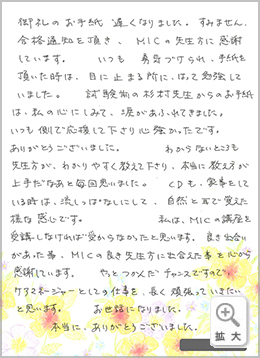 御礼のお手紙 遅くなりました。すみません。
合格通知を頂き、MICの先生方に感謝
しています。 いつも 勇気づけられ、手紙を
頂いた時は、目に止まる所に、はって勉強して
いました。 試験前の杉村先生からのお手紙
は、私の心にしみて、涙があふれてきました。
いつも側で応援して下さり心強かったです。
ありがとうございました。 わからないときも
先生方が、わかりやすく教えて下さり、本当に教え方が
上手だなあと毎回思いました。 CDも、家事をして
いる時は、流しっぱなしにして、自然と耳で覚えた
様な感じです。 私は、MICの講座を
受講しなければ受からなかったと思います。良き出会い
があった事、MICの良き先生方に出会えた事を心から
感謝しています。 やっとつかんだチャンスですので、
ケアマネージャーとしての仕事を、長く頑張っていきたい
と思います。 お世話になりました。
本当に、ありがとうございました。
拡大